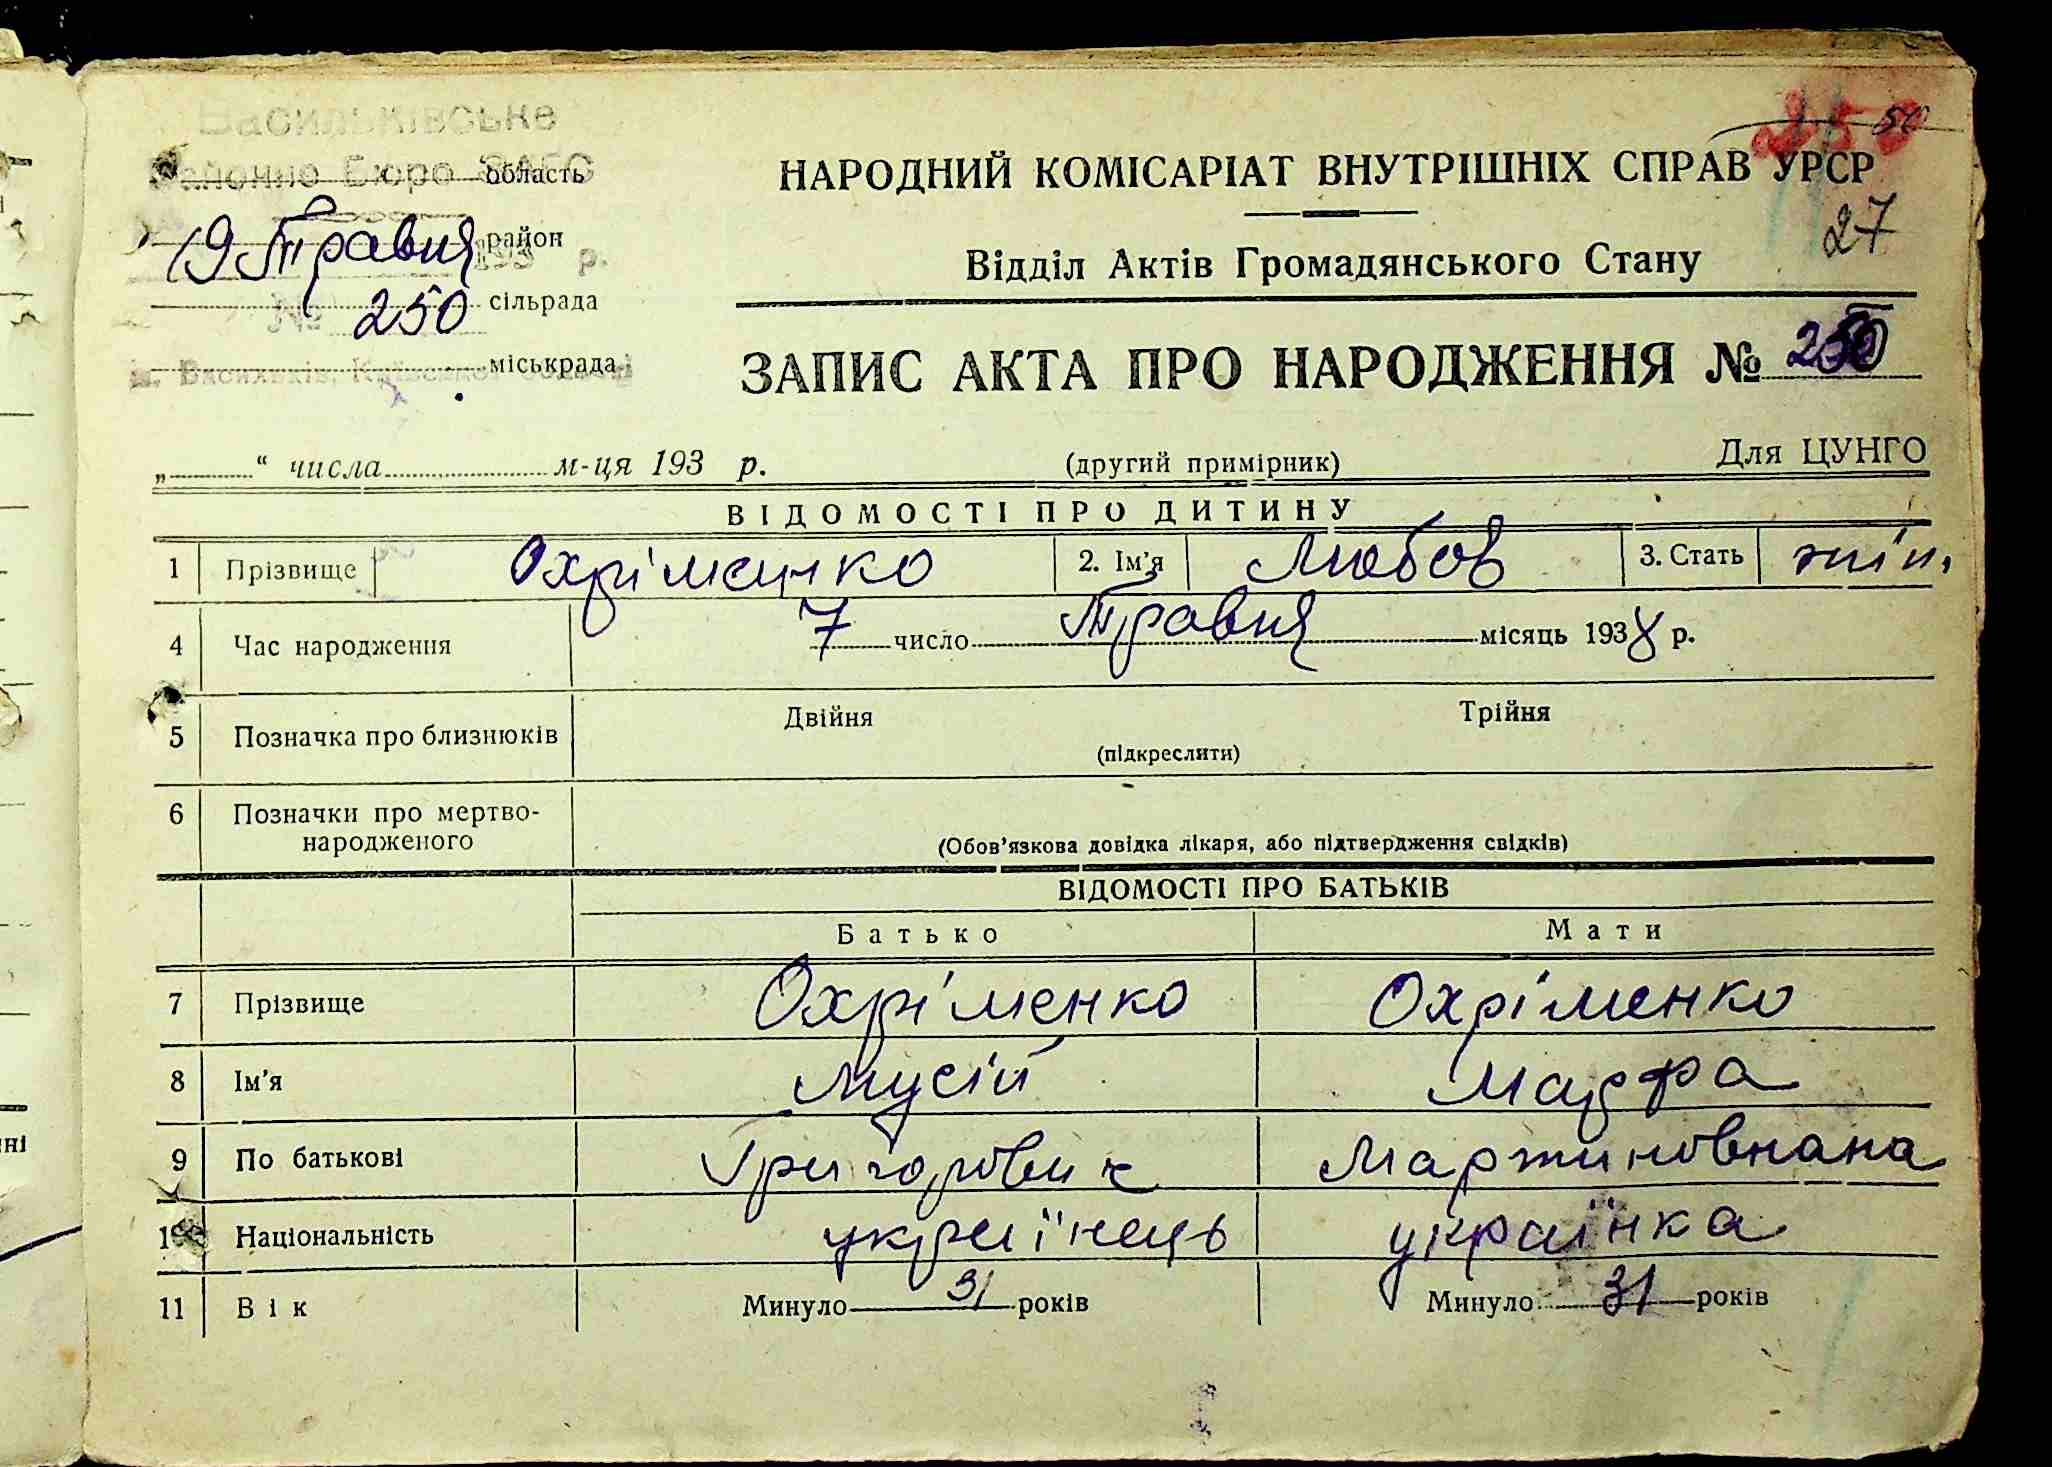 Васильківське
Районне Бюро ЗАГС
область
19 Травня район
193 р.
№ 250 сільрада
м. Васильків, Київської області
міськрада
50
НАРОДНИЙ КОМІСАРІАТ ВНУТРІШНІХ СПРАВ УРСР
27
Відділ Актів Громадянського Стану
ЗАПИС АКТА ПРО НАРОДЖЕННЯ № 250
„ “ числа м-ця 193 р. (другий примірник) Для ЦУНГО
ВІДОМОСТІ ПРО ДИТИНУ
1 Прізвище Охріменко 2. Ім'я Любов 3. Стать жін.
4 Час народження 7 число Травня місяць 1938 р.
5 Позначка про близнюків Двійня Трійня
(підкреслити)
6 Позначки про мертво-
народженого
(Обов'язкова довідка лікаря, або підтвердження свідків)
ВІДОМОСТІ ПРО БАТЬКІВ
Батько Мати
7 Прізвище Охріменко Охріменко
8 Ім'я Мусій Марфа
9 По батькові Григорович Мартиновнана
10 Національність українець українка
11 Вік Минуло 31 років Минуло 31 років
ні